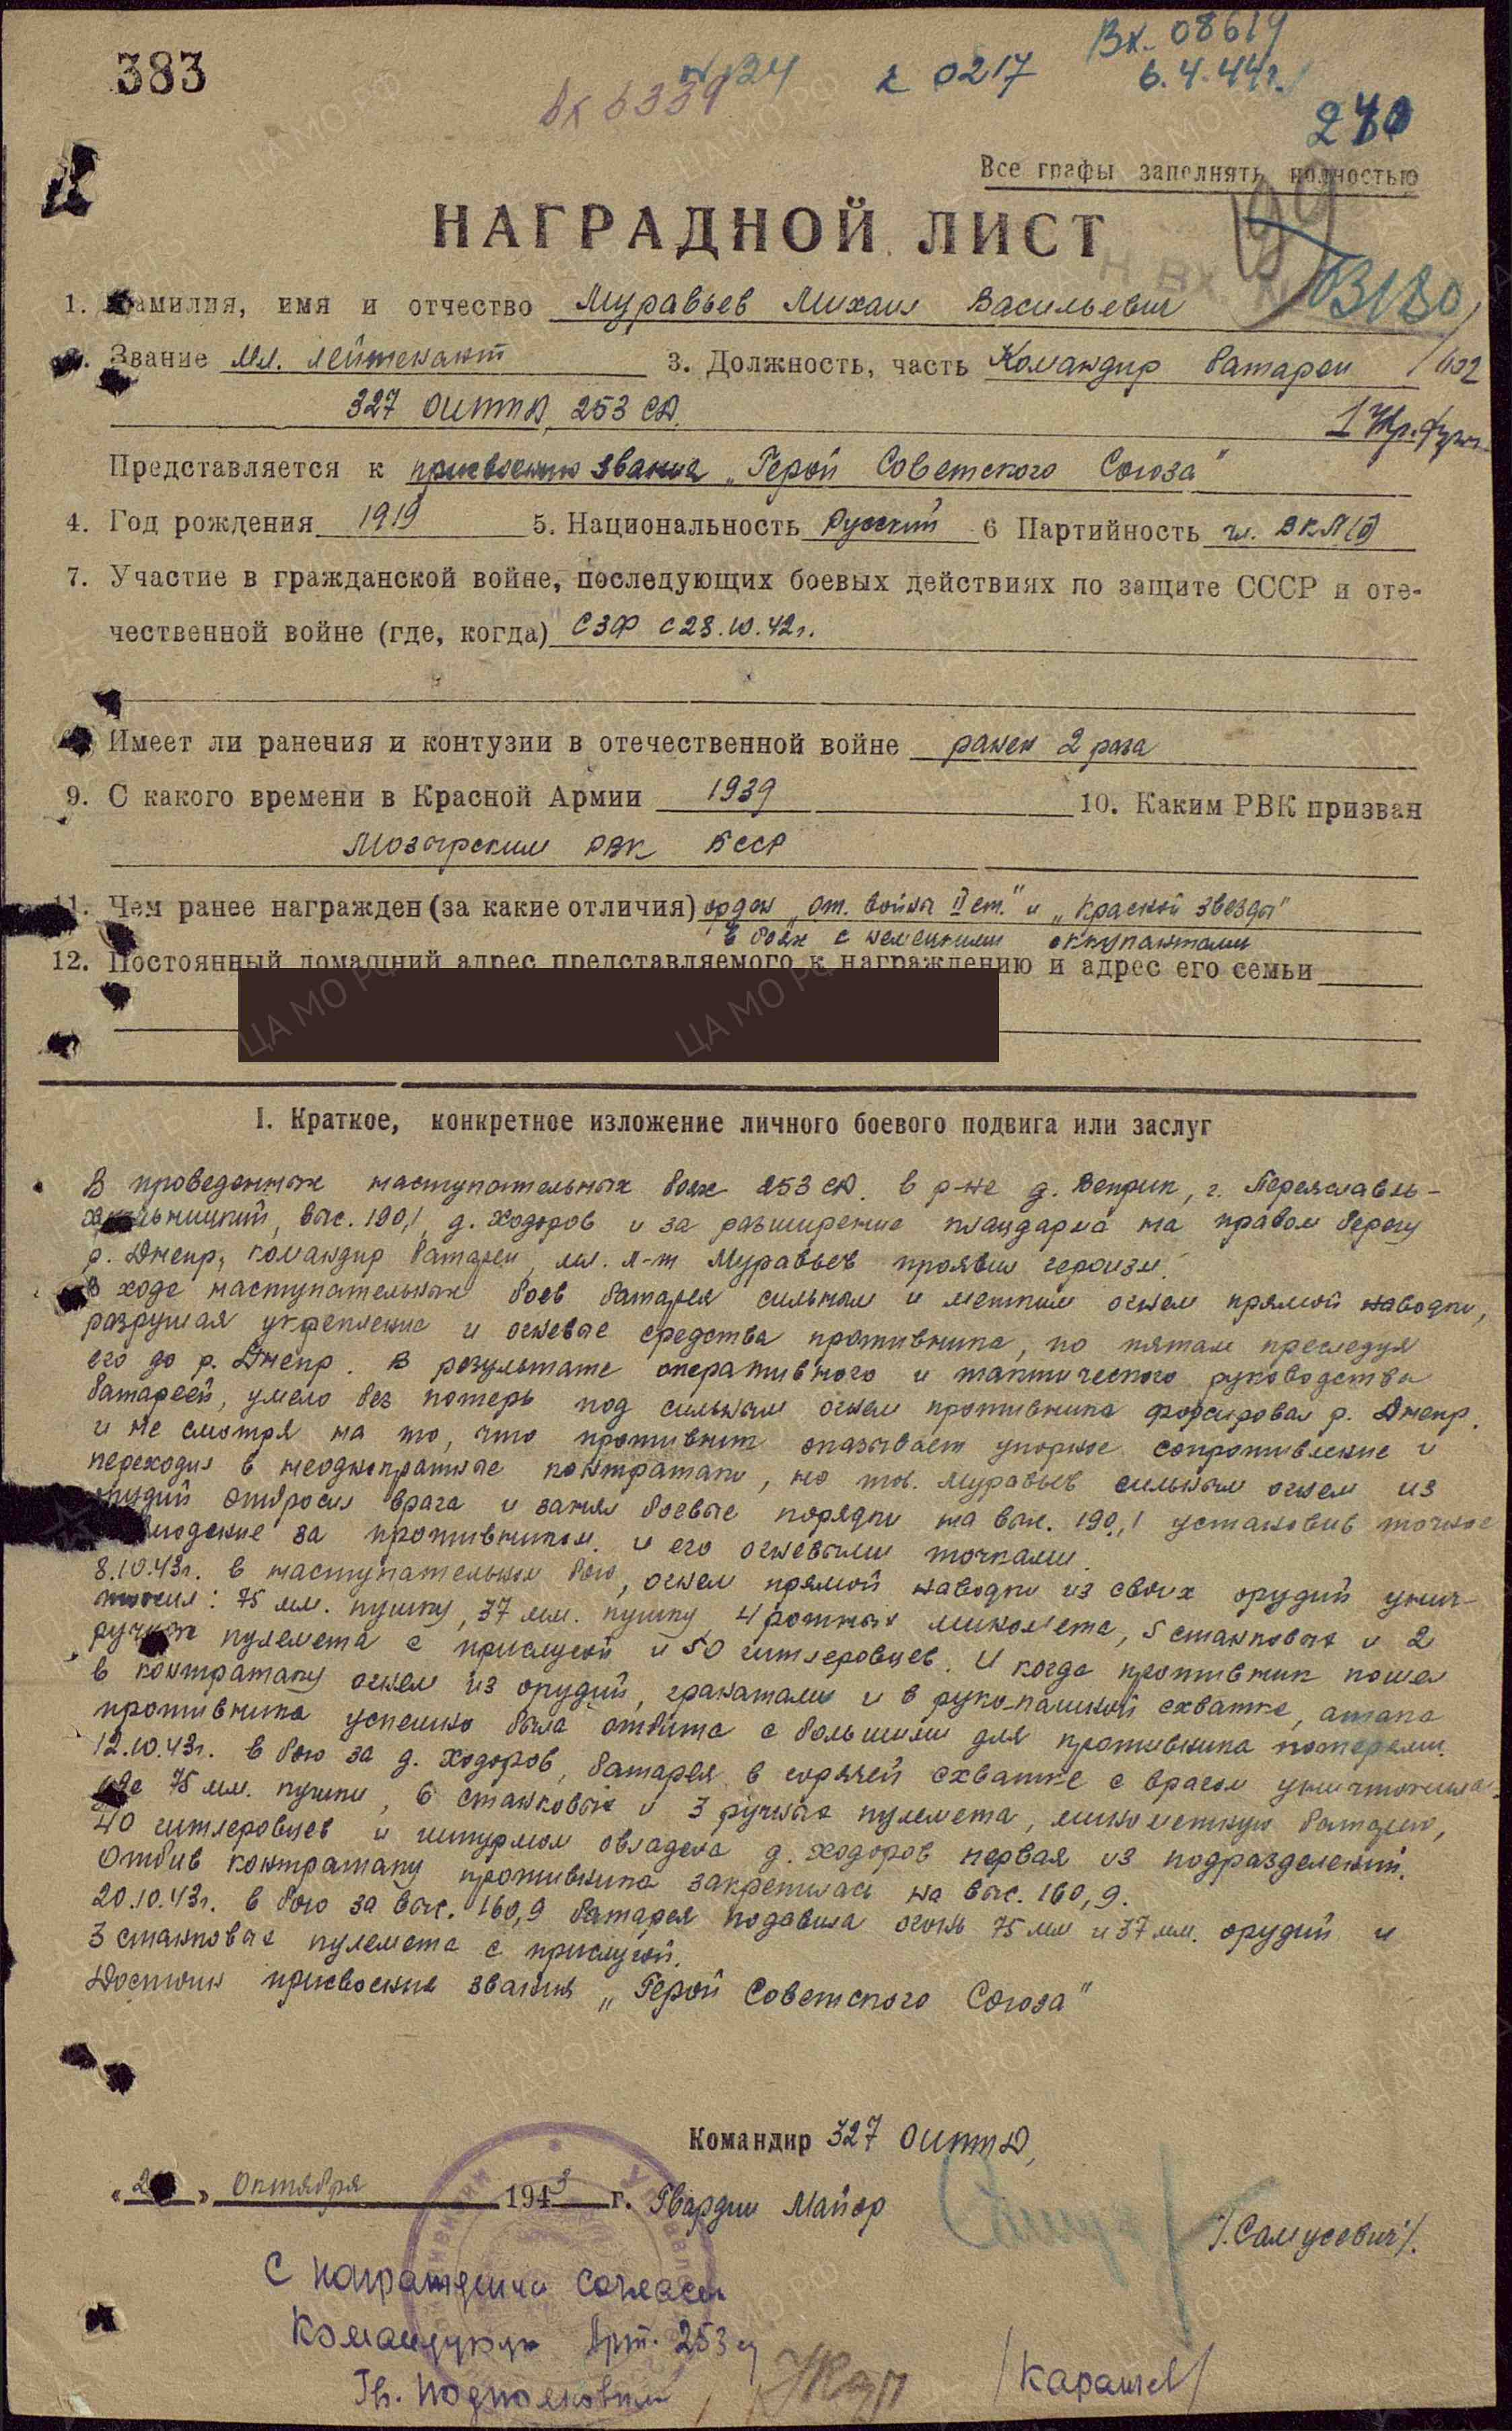 383
Вх. 08619
6.4.44г.
0217
вх 6339
Все графы заполнять полностью
НАГРАДНОЙ ЛИСТ
1. Фамилия, имя и отчество Муравьев Михаил Васильевич
Звание Мл. лейтенант 3. Должность, часть Командир батареи
327 ОИПТД, 253 СД.
1 Укр. фронт
Представляется к присвоению звания „Герой Советского Союза"
4. Год рождения 1919 5. Национальность Русский 6 Партийность чл. ВКП(б)
7. Участие в гражданской войне, последующих боевых действиях по защите СССР и оте-
чественной войне (где, когда) СЗФ с 28. 42г.
Имеет ли ранения и контузии в отечественной войне ранен 2 раза
9. С какого времени в Красной Армии 1939 10. Каким РВК призван
Мозырским РВК БССР
11. Чем ранее награжден (за какие отличия) орден „От. война II ст." и „Красной звезды"
в боях с немецкими оккупантами
12. Постоянный домашний адрес представляемого к награждению и адрес его семьи
I. Краткое, конкретное изложение личного боевого подвига или заслуг
В проведенных наступательных боях 253 СД. в р-не д. Веприк, г. Переяславль-
Хмельницкий, выс. 190,1, д. Ходоров и за расширение плацдарма на правом берегу
р. Днепр, командир батареи, мл. л-т Муравьев проявил героизм.
В ходе наступательных боев батарея сильным и метким огнем прямой наводки,
разрушая укрепление и огневые средства противника, по пятам преследуя
его до р. Днепр. В результате оперативного и тактического руководства
батареей, умело без потерь под сильным огнем противника форсировал р. Днепр.
и не смотря на то, что противник оказывает упорное сопротивление и
переходил в неоднократные контратаки, но тов. Муравьев сильным огнем из
орудий отбросил врага и занял боевые порядки на выс. 190,1 установив точное
наблюдение за противником. и его огневыми точками.
8.10.43г. в наступательном бою, огнем прямой наводки из своих орудий унич-
тожил: 75 мм. пушку, 37 мм. пушку 4 ротных миномета, 5 станковых и 2
ручных пулемета с прислугой и 50 гитлеровцев. И когда противник пошел
в контратаку огнем из орудий, гранатами и в руко-пашной схватке, атака
противника успешно была отбита с большими для противника потерями.
12.10.43г. в бою за д. Ходоров, батарея в горячей схватке с врагом уничтожила:
две 75 мм. пушки, 6 станковых и 3 ручных пулемета, минометную батарею,
40 гитлеровцев и штурмом овладела д. Ходоров первая из подразделений.
Отбив контратаку противника закрепилась на выс. 160,9.
20.10.43г. в бою за выс. 160,9 батарея подавила огонь 75 мм и 37 мм. орудий и
3 станковых пулемета с прислугой.
Достоин присвоения звания „Герой Советского Союза"
Командир 327 ОИПТД,
Октября 1943 г. Гвардии Майор /Самусевич/.
С награждением согласен
Командующий Арт. 253 сд
Гв. Подполковник /Карашев/